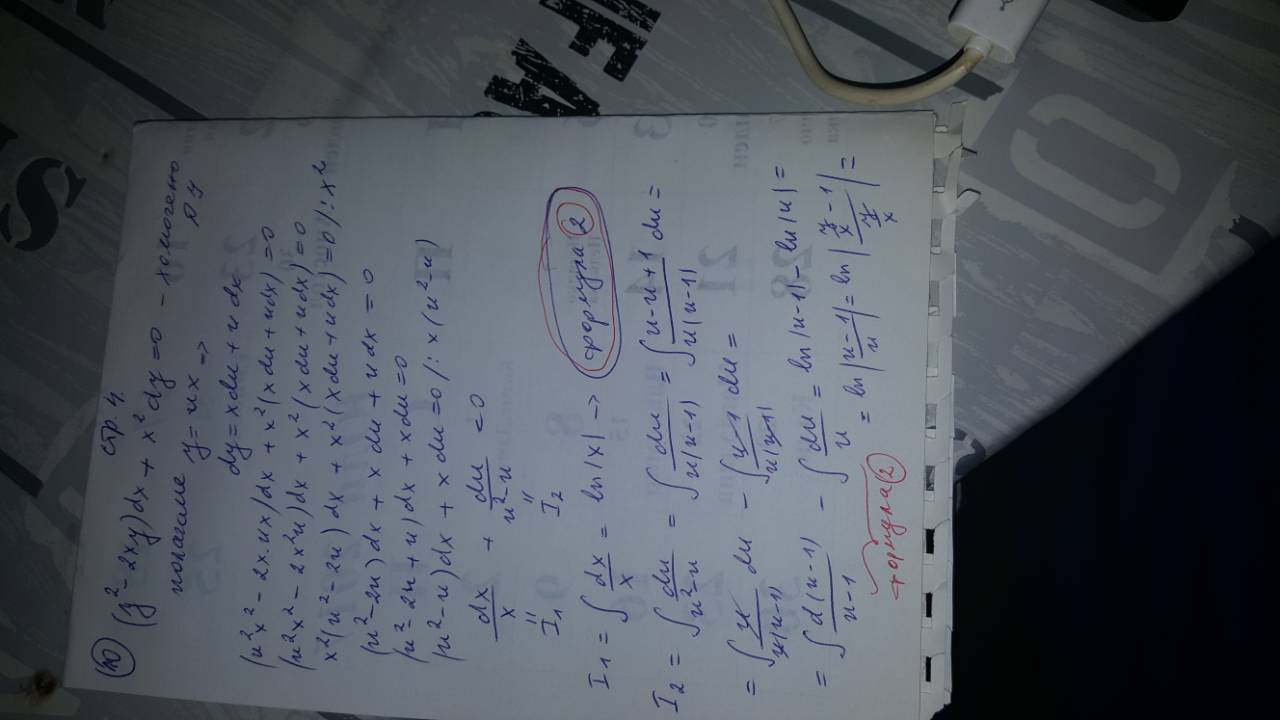 стр. 4.
(10) (y² - 2xy)dx + x² dy = 0 - хомогено
ДУ
полагаме y = ux ->
dy = xdu + u dx
(u²x² - 2x.ux)dx + x²(xdu + udx) = 0
(u²x² - 2x²u)dx + x²(xdu + udx) = 0
x²(u² - 2u) dx + x²(xdu + udx) = 0 /: x²
(u² - 2u) dx + x du + u dx = 0
(u² - 2u + u) dx + x du = 0
(u² - u)dx + x du = 0 /: x(u² - u)
dx/x + du/(u² - u) = 0
" "
I₁ I₂
I₁ = ∫ dx/x = ln|x| -> формула (2)
I₂ = ∫ du/(u² - u) = ∫ du/(u(u-1)) = ∫ (u - u + 1)/(u(u-1)) du =
= ∫ u/(u(u-1)) du - ∫ (u-1)/(u(u-1)) du =
= ∫ d(u-1)/(u-1) - ∫ du/u = ln|u-1| - ln|u| =
= ln|(u-1)/u| = ln|(y/x - 1)/(y/x)| =
формула (2)
FA
14
21
28